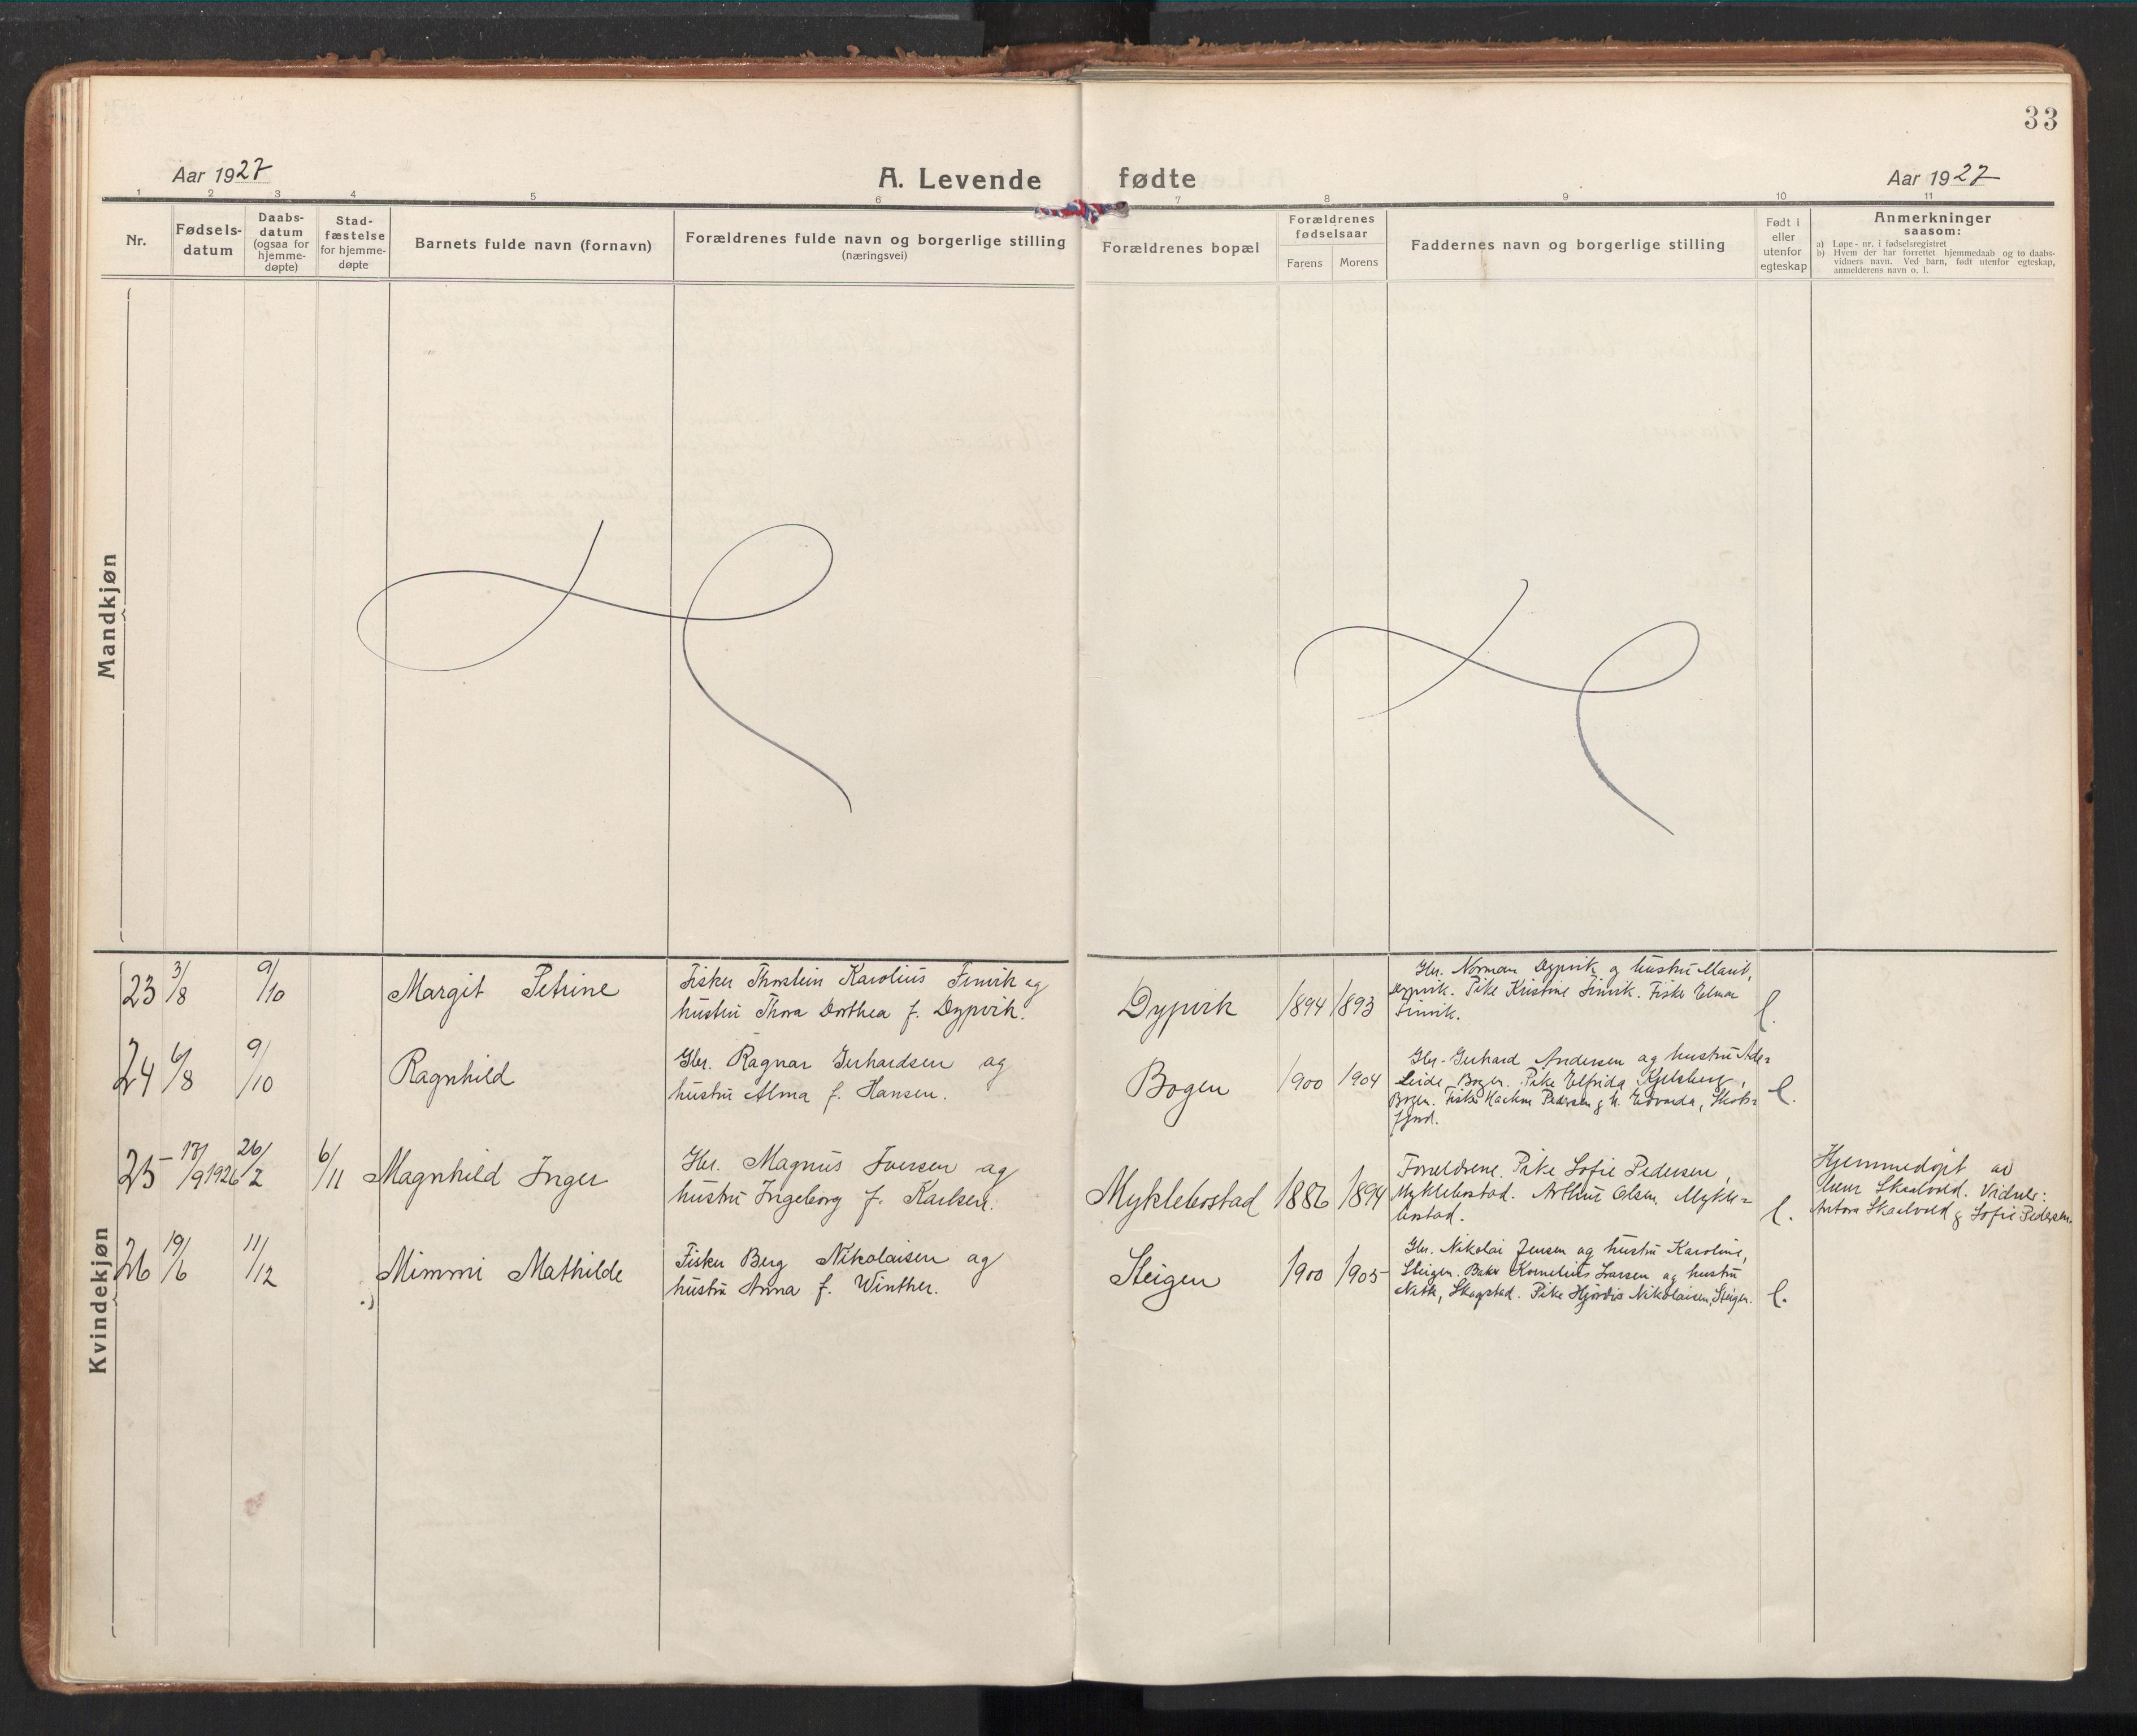 33
Aar 1927
A. Levende fødte
Aar 1927
1 2 3 4 5 6 7 8 9 10 11
Nr.
Fødsels-
datum
Daabs-
datum
(ogsaa for
hjemme-
døpte)
Stad-
fæstelse
for hjemme-
døpte
Barnets fulde navn (fornavn)
Forældrenes fulde navn og borgerlige stilling
(næringsvei)
Forældrenes bopæl
Forældrenes
fødselsaar
Farens Morens
Faddernes navn og borgerlige stilling
Født i
eller
utenfor
egteskap
Anmerkninger
saasom:
a) Løpe-nr. i fødselsregistret
b) Hvem der har forrettet hjemmedaab og to daabs-
vidners navn. Ved barn, født utenfor egteskap,
anmelderens navn o. l.
Mandkjøn
Kvindekjøn
23 3/8 9/10 Margit Petrine
Fisker Thorstein Karolius Finvik og
hustru Thora Dorthea f. Dypvik.
Dypvik 1894 1893
Gbr. Norman Dypvik og hustru Marit,
Dypvik. Pike Kristine Finvik. Fisker Elmar
Finvik.
l.
24 6/8 9/10 Ragnhild
Gbr. Ragnar Gerhardsen og
hustru Alma f. Hansen.
Bogen 1900 1904
Gbr. Gerhard Andersen og hustru Ade-
leide, Bogen. Pike Elfrida Kjelsberg,
Bogen. Fisker Haakon Pedersen & h. Edvarda, Skots-
fjord.
l.
25 17/9 1926 26/2 6/11 Magnhild Inger
Gbr. Magnus Iversen og
hustru Ingeborg f. Karlsen.
Myklebostad 1886 1894
Forældrene. Pike Sofie Pedersen,
Myklebostad. Arthur Olsen, Mykle-
bostad.
l.
Hjemmedøpt av
lærer Skaalvold. Vidner:
Antora Skaalvold & Sofie Pedersen.
26 19/6 11/12 Mimmi Mathilde
Fisker Berg Nikolaisen og
hustru Anna f. Winther.
Steigen 1900 1905
Gbr. Nikolai Jensen og hustru Karoline,
Steigen. Baker Kornelius Larsen og hustru
Skagstad. Pike Hjørdis Nikolaisen, Steigen.
l.